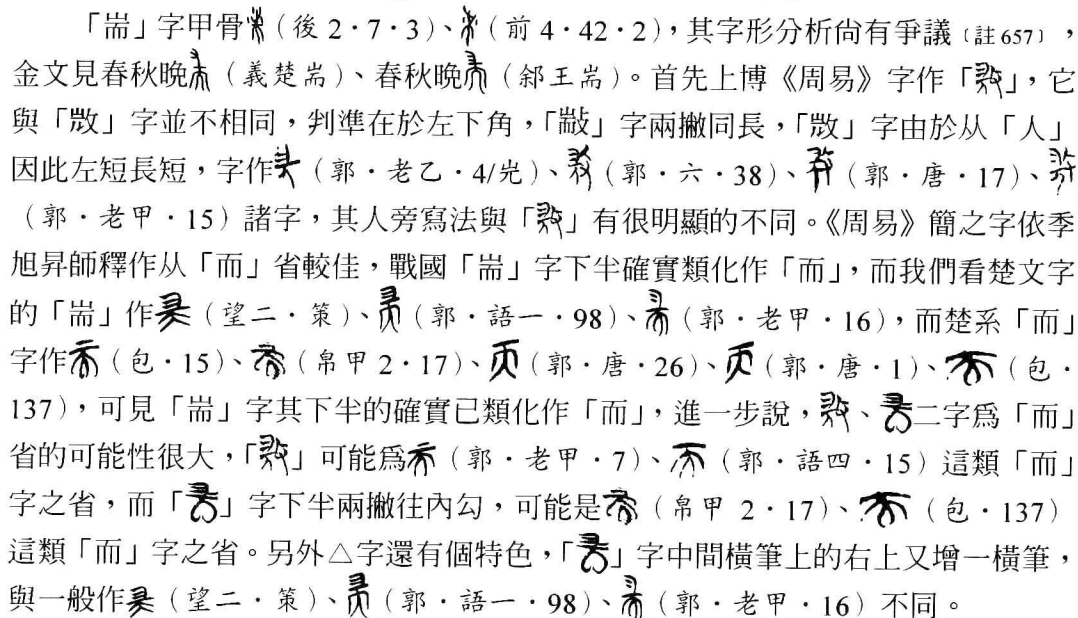 「耑」字甲骨(後2·7·3)、(前4·42·2),其字形分析尚有爭議〔註657〕,
金文見春秋晚(義楚耑)、春秋晚(䣄王耑)。首先上博《周易》字作「」,它
與「㪔」字並不相同,判準在於左下角,「」字兩撇同長,「㪔」字由於从「人」
因此左短長短,字作(郭·老乙·4/㞷)、(郭·六·38)、(郭·唐·17)、
(郭·老甲·15)諸字,其人旁寫法與「」有很明顯的不同。《周易》簡之字依季
旭昇師釋作从「而」省較佳,戰國「耑」字下半確實類化作「而」,而我們看楚文字
的「耑」作(望二·策)、(郭·語一·98)、(郭·老甲·16),而楚系「而」
字作(包·15)、(帛甲2·17)、(郭·唐·26)、(郭·唐·1)、(包·
137),可見「耑」字其下半的確實已類化作「而」,進一步說,、二字爲「而」
省的可能性很大,「」可能爲(郭·老甲·7)、(郭·語四·15)這類「而」
字之省,而「」字下半兩撇往內勾,可能是(帛甲 2·17)、(包·137)
這類「而」字之省。另外△字還有個特色,「」字中間橫筆上的右上又增一橫筆,
與一般作(望二·策)、(郭·語一·98)、(郭·老甲·16)不同。